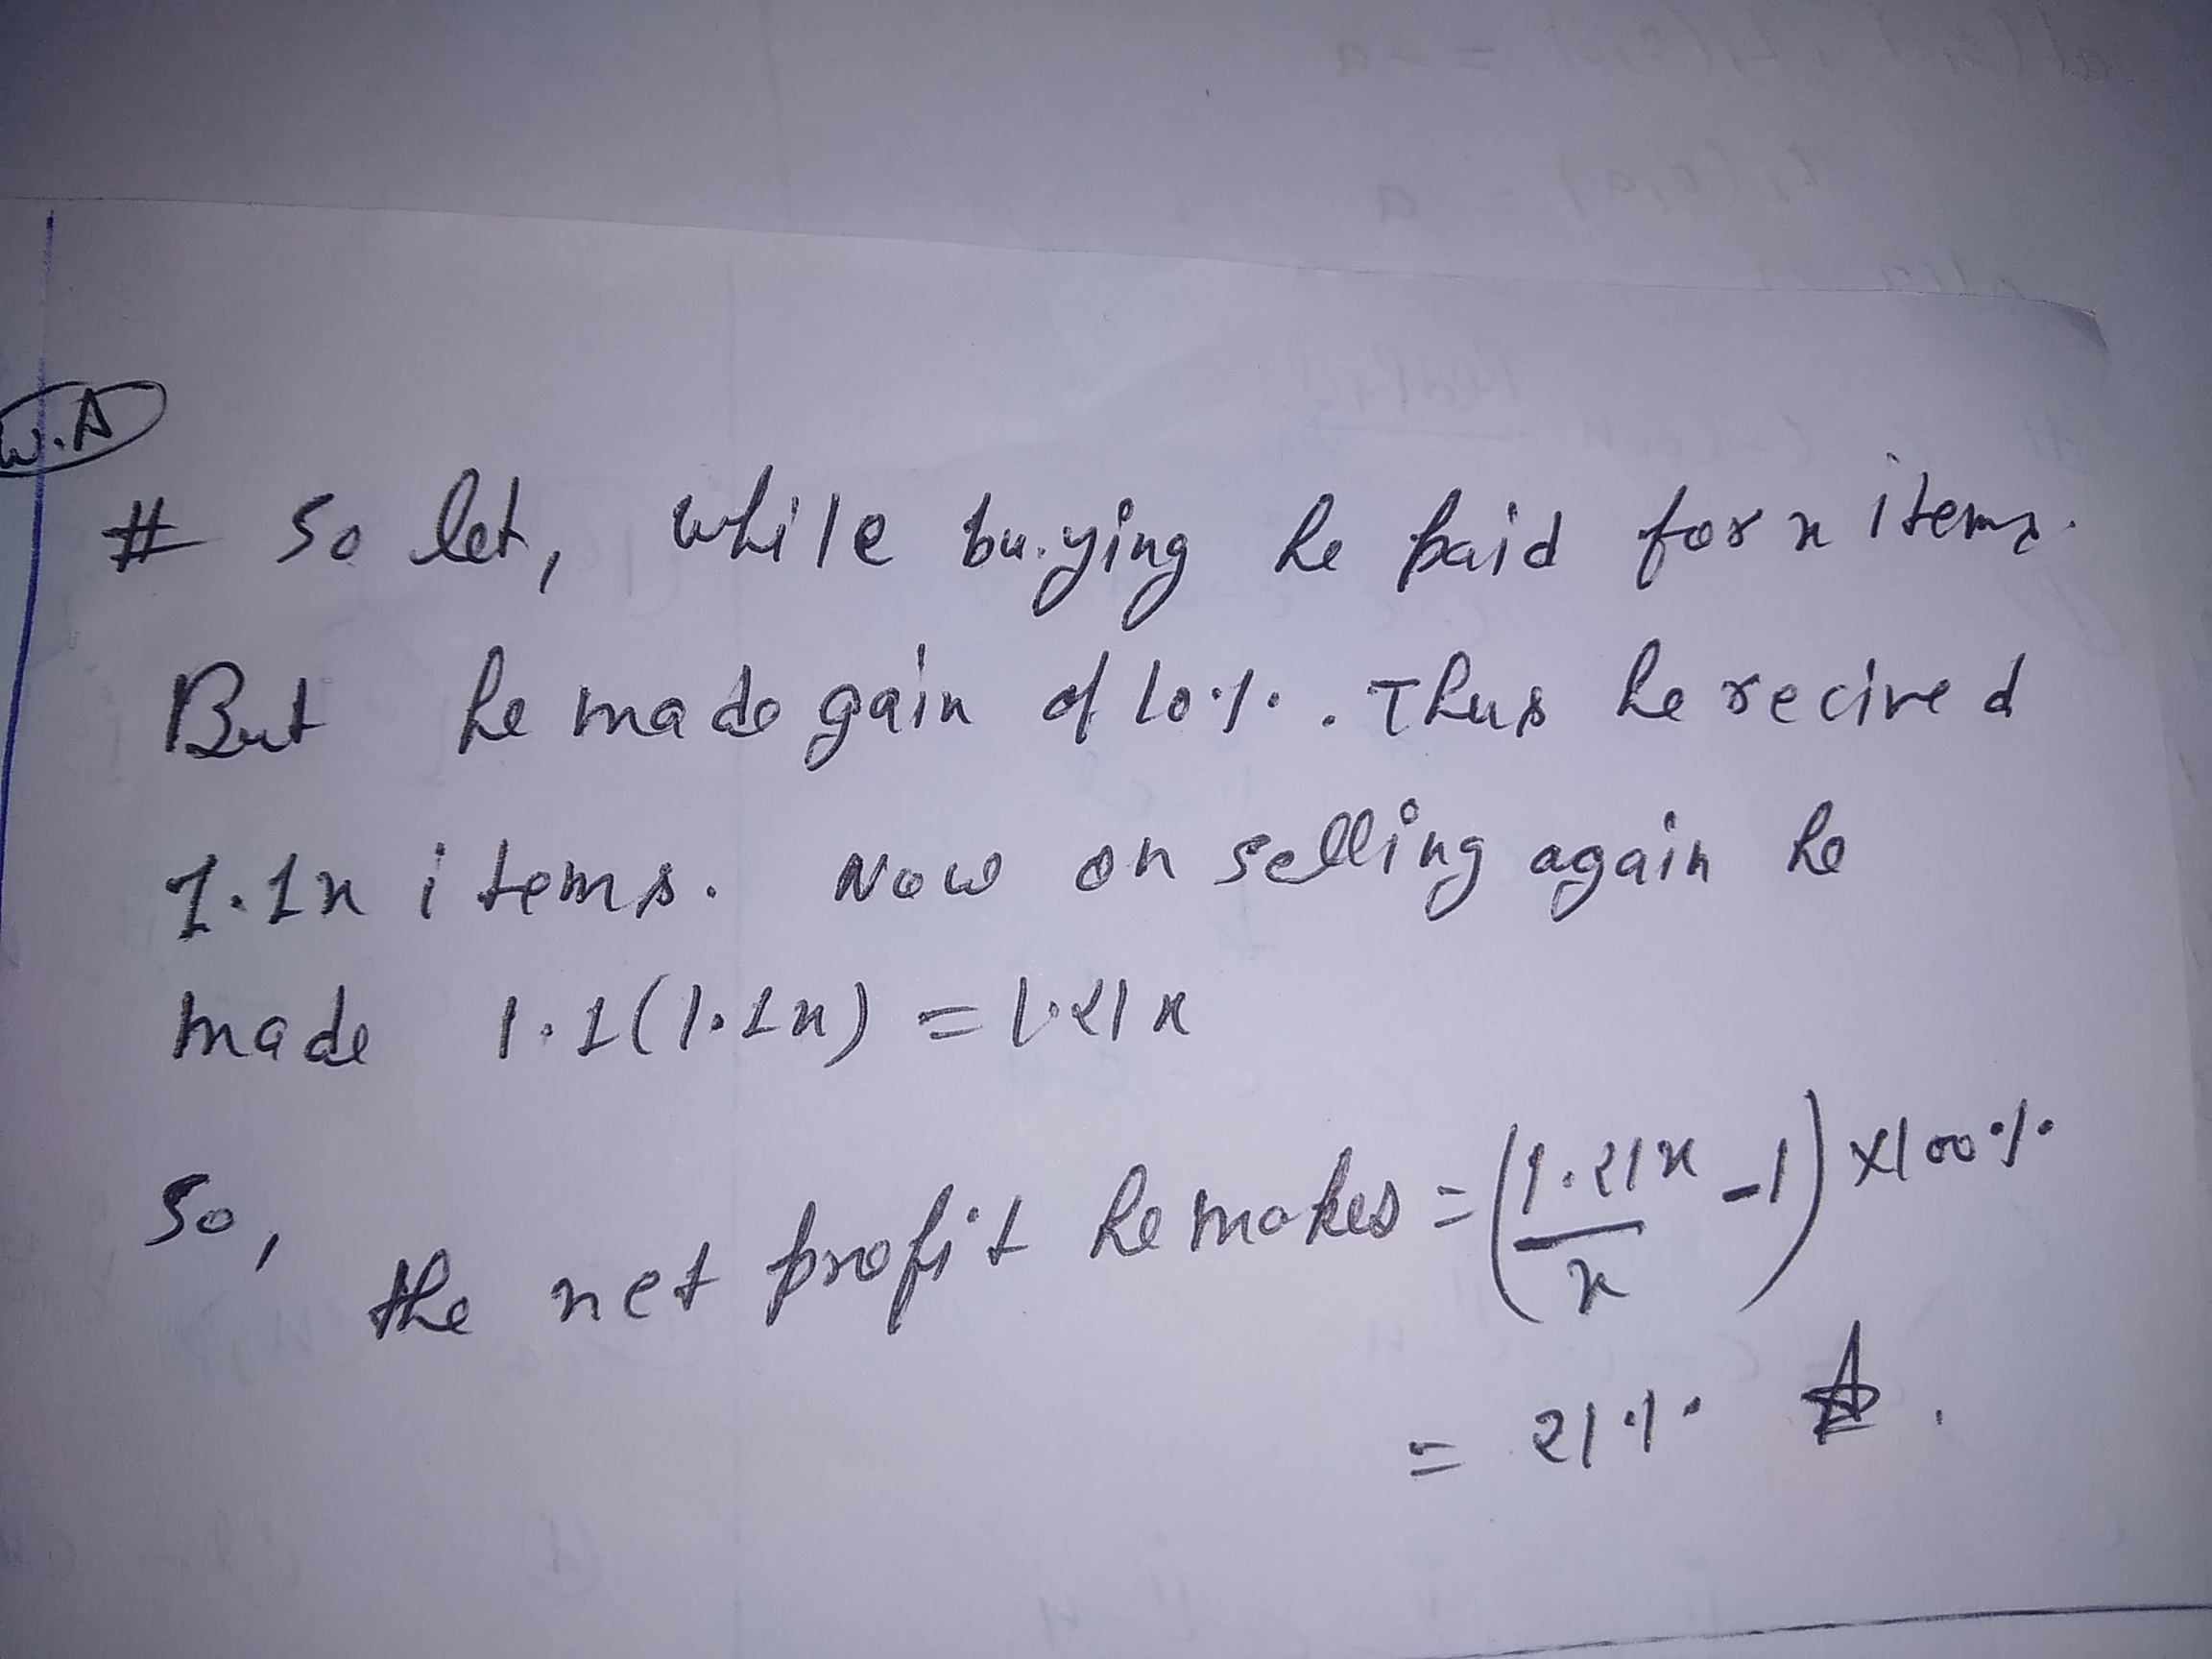 W.A
# So let, while buying he paid for x items.
But he made gain of 10%. Thus he recived
1.1x items. Now on selling again he
made 1.1(1.1x) = 1.21x
So, the net profit he makes = (1.21x/x - 1) x100%
= 21%